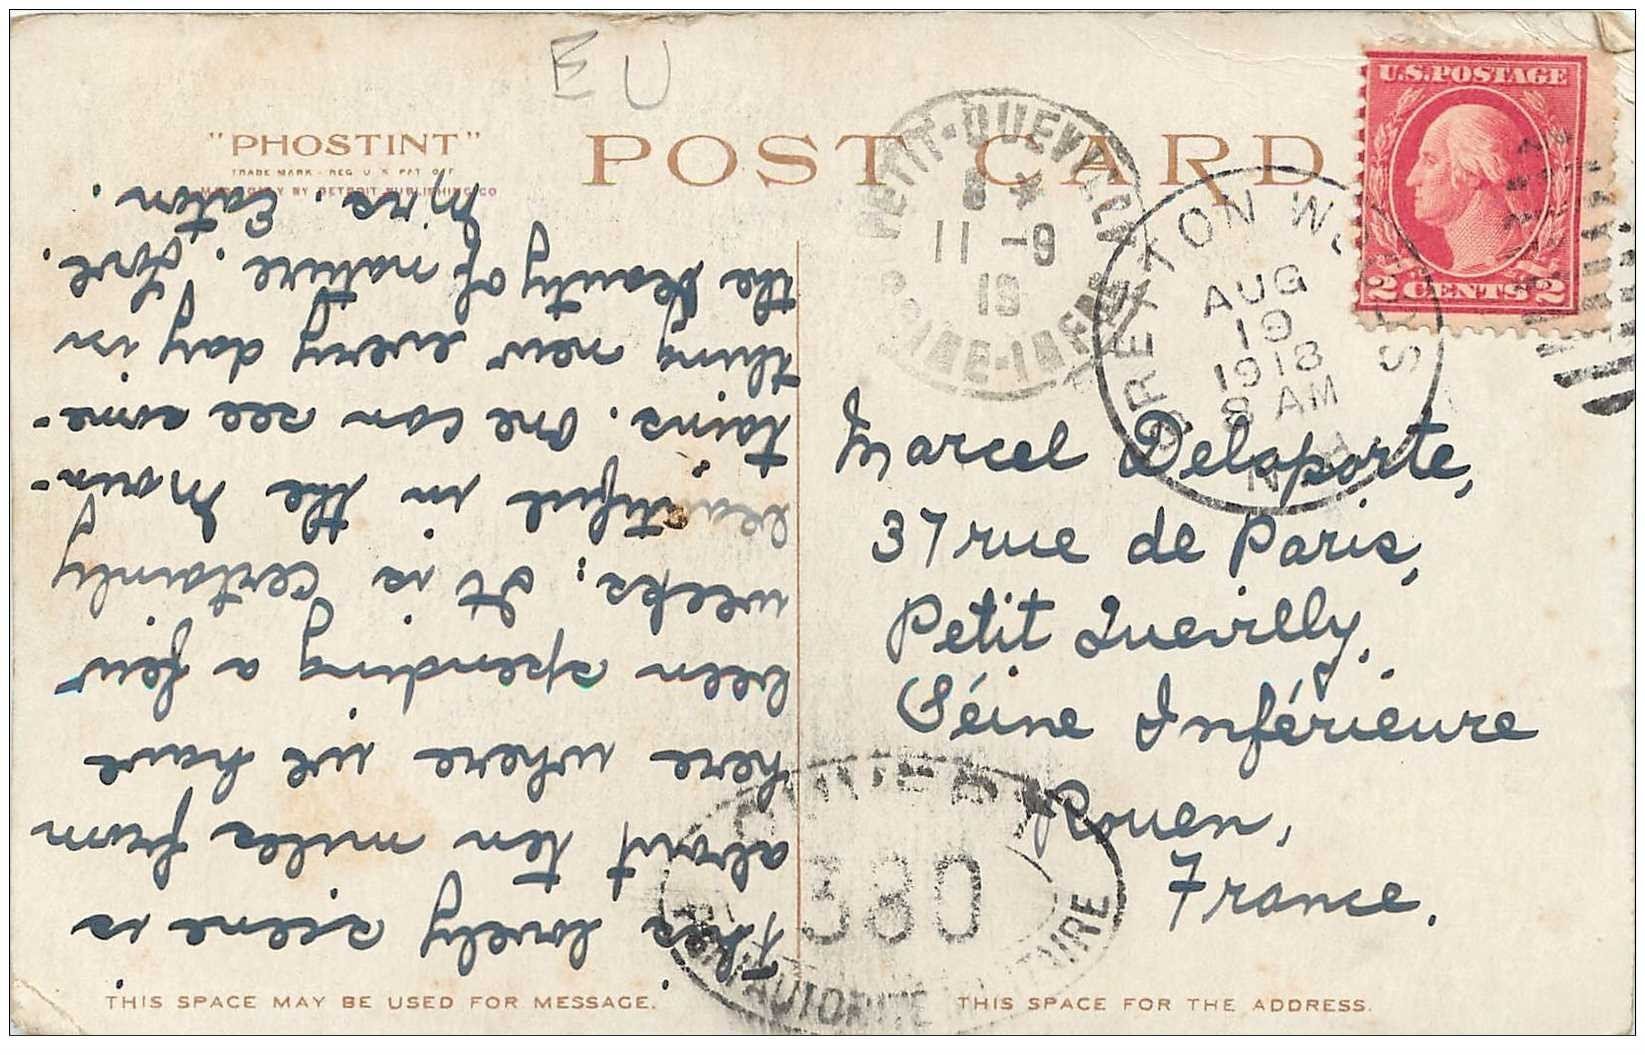 EU
"PHOSTINT"
TRADE MARK - REG U S PAT OFF
MADE ONLY BY DETROIT PUBLISHING CO
POST CARD
U.S. POSTAGE
2 CENTS 2
PETIT-QUEVILLY
8 *
11 -9
18
SEINE-INFRE
BRETTON WOODS
AUG
19
1918
8 AM
N.H.
Marcel Delaporte,
37 rue de Paris,
Petit Quevilly,
Séine Inférieure
Rouen,
France.
OUVERT
380
PAR L'AUTORITÉ MILITAIRE
This lovely scene is
about ten miles from
here where we have
been spending a few
weeks. It is certainly
beautiful in the Moun-
tains. One can see some-
thing new every day in
the beauty of nature. Love.
Mrs. Eaton.
THIS SPACE MAY BE USED FOR MESSAGE.
THIS SPACE FOR THE ADDRESS.